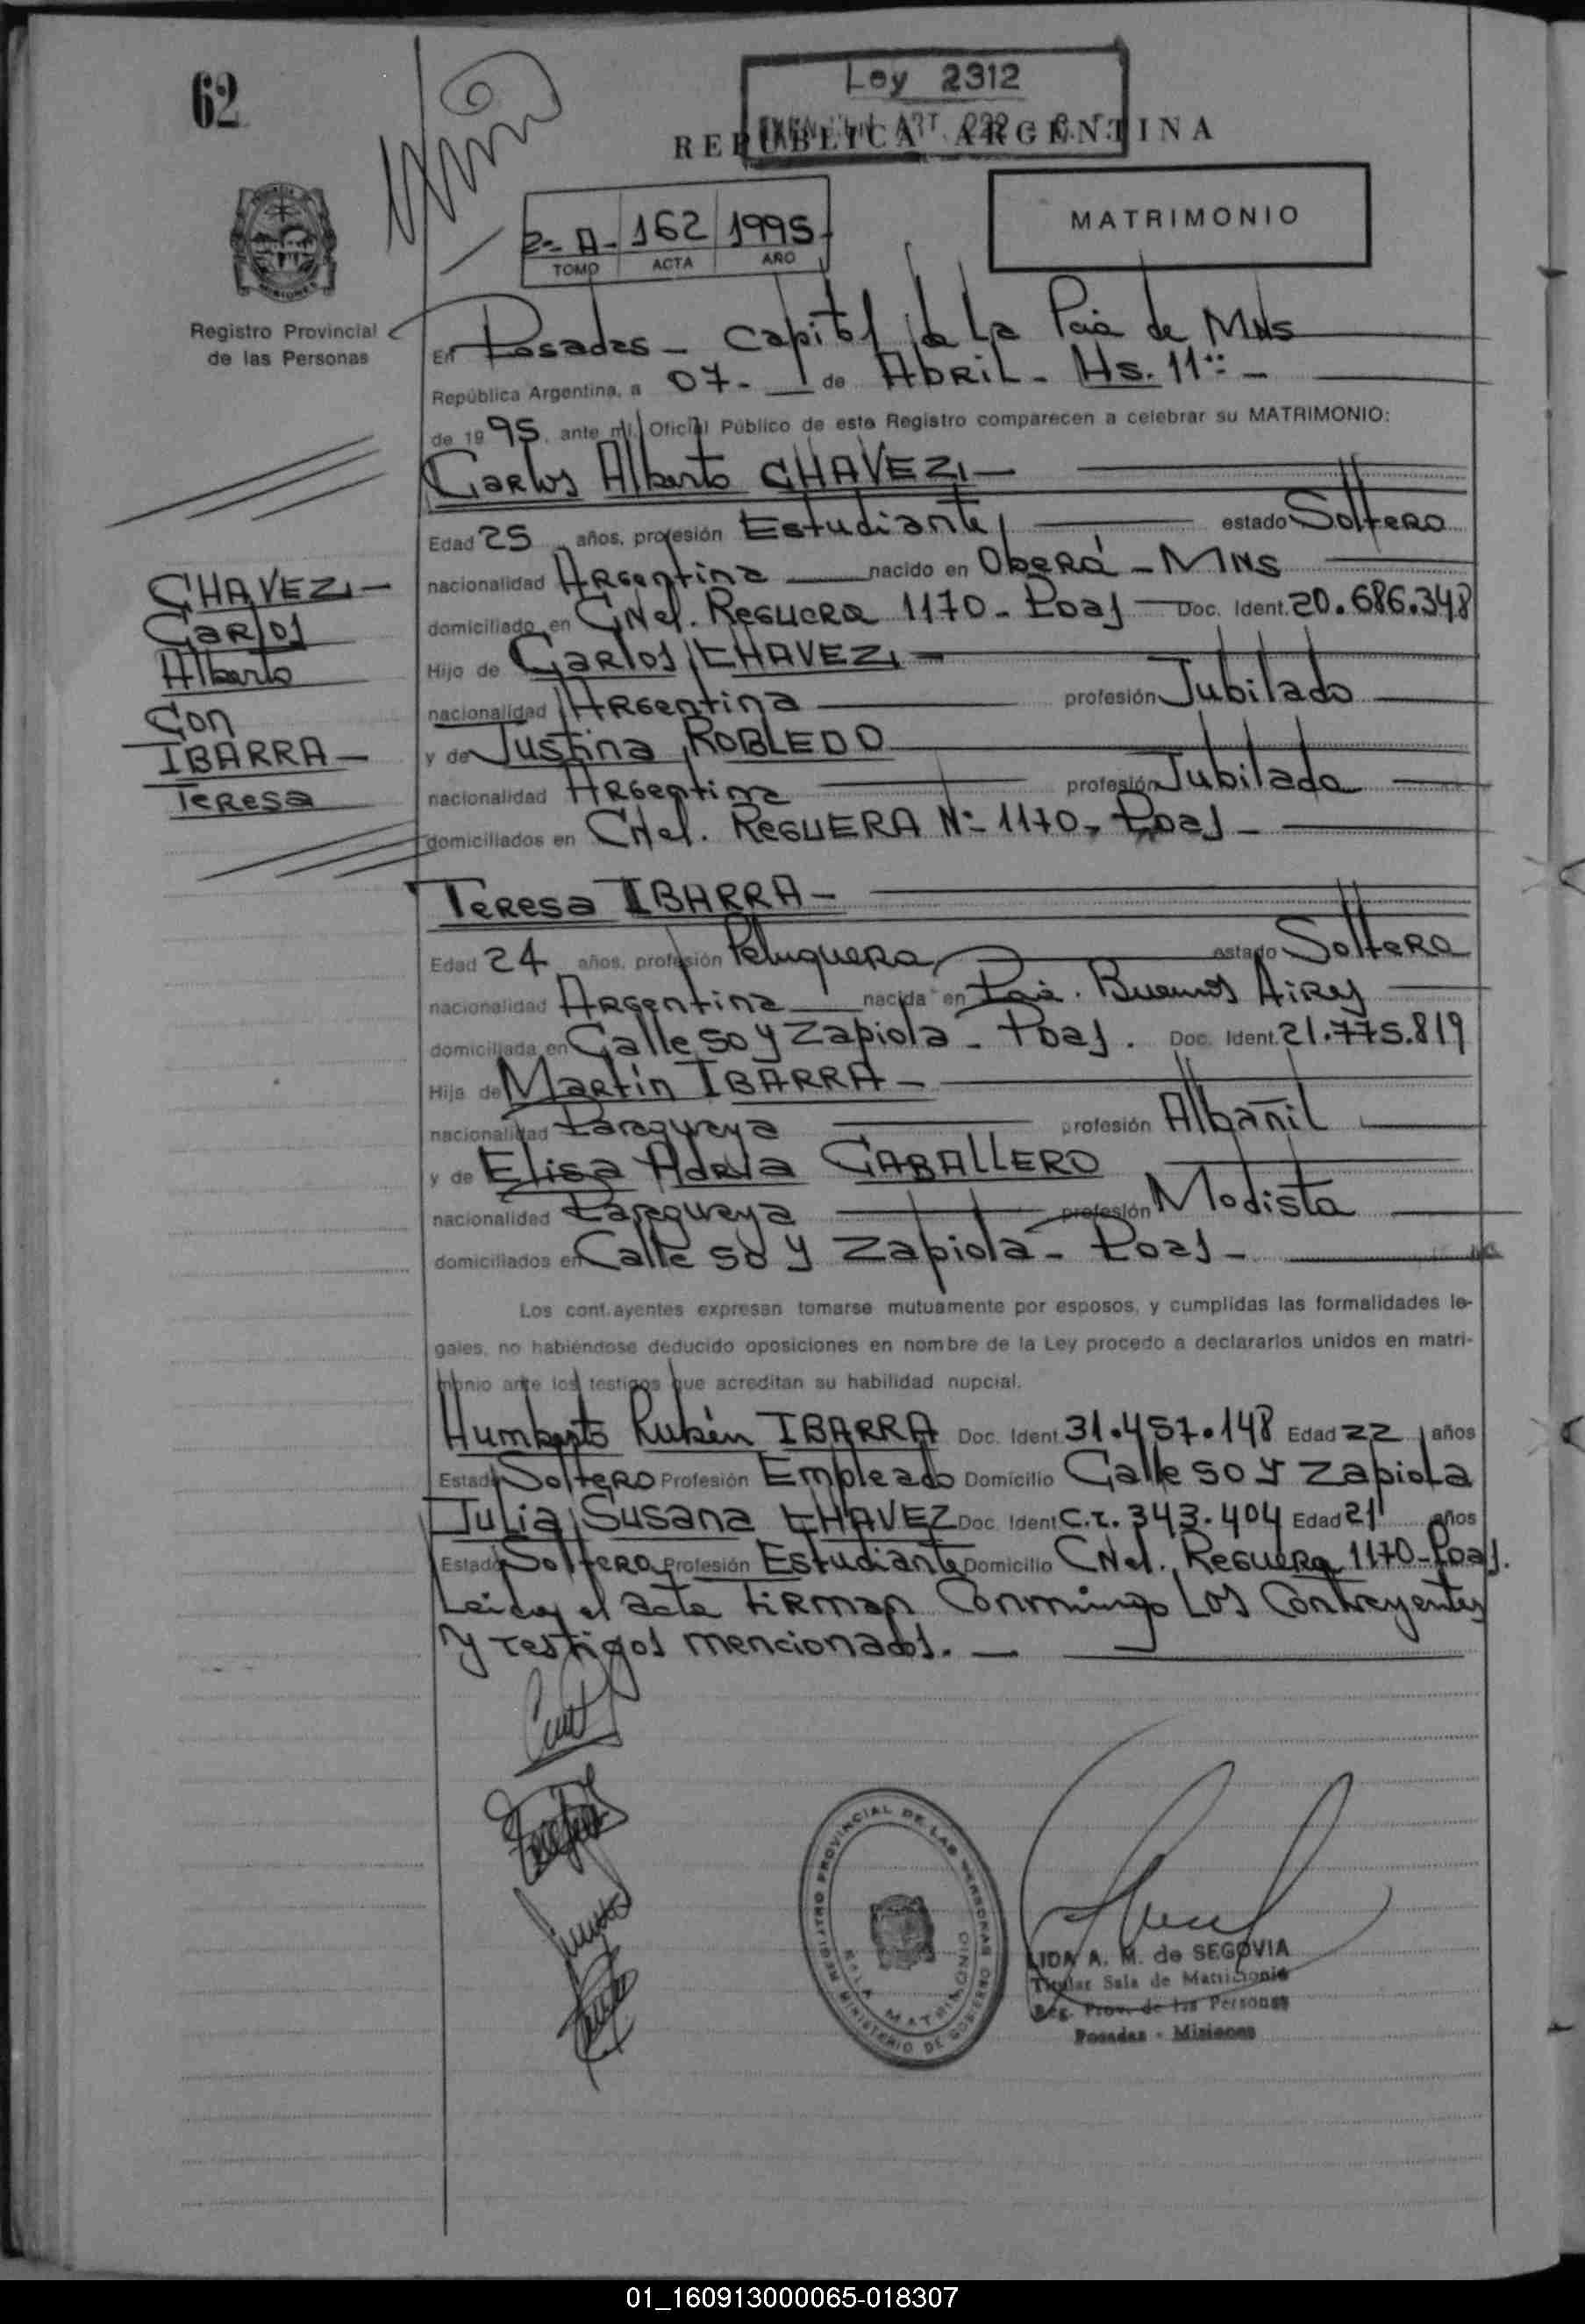 62
Ley 2312
REPUBLICA ARGENTINA
2º A- 162 1995
TOMO ACTA AÑO
MATRIMONIO
MISIONES
Registro Provincial
de las Personas
En Posadas - Capital de La Pcia de MNS
República Argentina, a 07- de Abril - Hs. 11
de 1995, ante mí, Oficial Público de este Registro comparecen a celebrar su MATRIMONIO:
Carlos Alberto CHAVEZ
Edad 25 años, profesión Estudiante estado Soltero
nacionalidad Argentina nacido en Oberá - MNS
domiciliado en CNel. Reguera 1170 - Pdas Doc. Ident. 20.686.348
Hijo de Carlos CHAVEZ
nacionalidad Argentina profesión Jubilado
y de Justina ROBLEDO
nacionalidad Argentina profesión Jubilada
domiciliados en CNel. REGUERA Nº 1170, Pdas -
CHAVEZ
Carlos
Alberto
Con
IBARRA -
Teresa
Teresa IBARRA -
Edad 24 años, profesión Peluquera estado Soltera
nacionalidad Argentina nacida en Pcia. Buenos Aires
domiciliada en Calle 50 y Zapiola - Pdas. Doc. Ident. 21.775.819
Hija de Martín IBARRA -
nacionalidad Paraguaya profesión Albañil
y de Elisa CABALLERO
nacionalidad Paraguaya profesión Modista
domiciliados en Calle 50 y Zapiola - Pdas -
Los contrayentes expresan tomarse mutuamente por esposos, y cumplidas las formalidades le-
gales, no habiéndose deducido oposiciones en nombre de la Ley procedo a declararlos unidos en matri-
monio ante los testigos que acreditan su habilidad nupcial.
Humberto Rubén IBARRA Doc. Ident. 31.457.148 Edad 22 años
Estado Soltero Profesión Empleado Domicilio Calle 50 y Zapiola
Julia Susana CHAVEZ Doc. Ident C.I. 343.404 Edad 21 años
Estado Soltera Profesión Estudiante Domicilio CNel. Reguera 1170 - Pdas.
Leida el acta firman Conmigo Los Contrayentes
y testigos mencionados. -
REGISTRO PROVINCIAL DE LAS PERSONAS
SALA MATRIMONIO
MINISTERIO DE GOBIERNO
LIDA A. M. de SEGOVIA
Titular Sala de Matrimonio
Reg. Prov. de las Personas
Posadas - Misiones
01_160913000065-018307